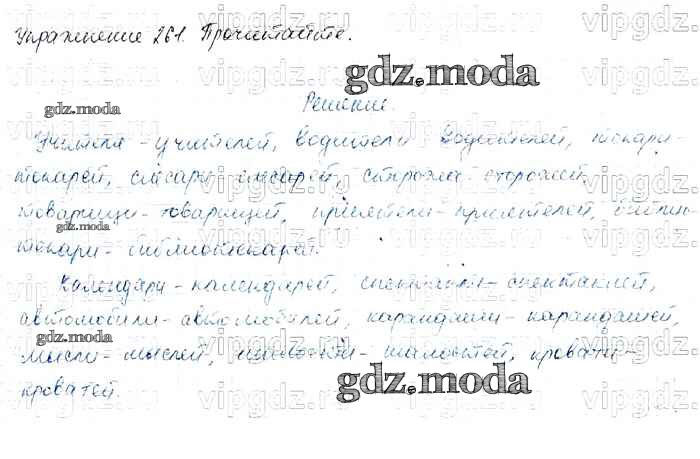 Упражнение 261. Прочитайте.
gdz.moda
gdz.moda
Решение.
Учителя - учителей, водители водителей, токари-
токарей, слесари слесарей, сторожа сторожей
товарищи - товарищей, приятели - приятелей,
gdz.moda
текари - библиотекарей.
Календари - календарей, спектакли - спектаклей,
автомобили - автомобилей, карандаши - карандашей,
gdz.moda
мысли - мыслей, шалостей, кровати -
gdz.moda
кроватей.